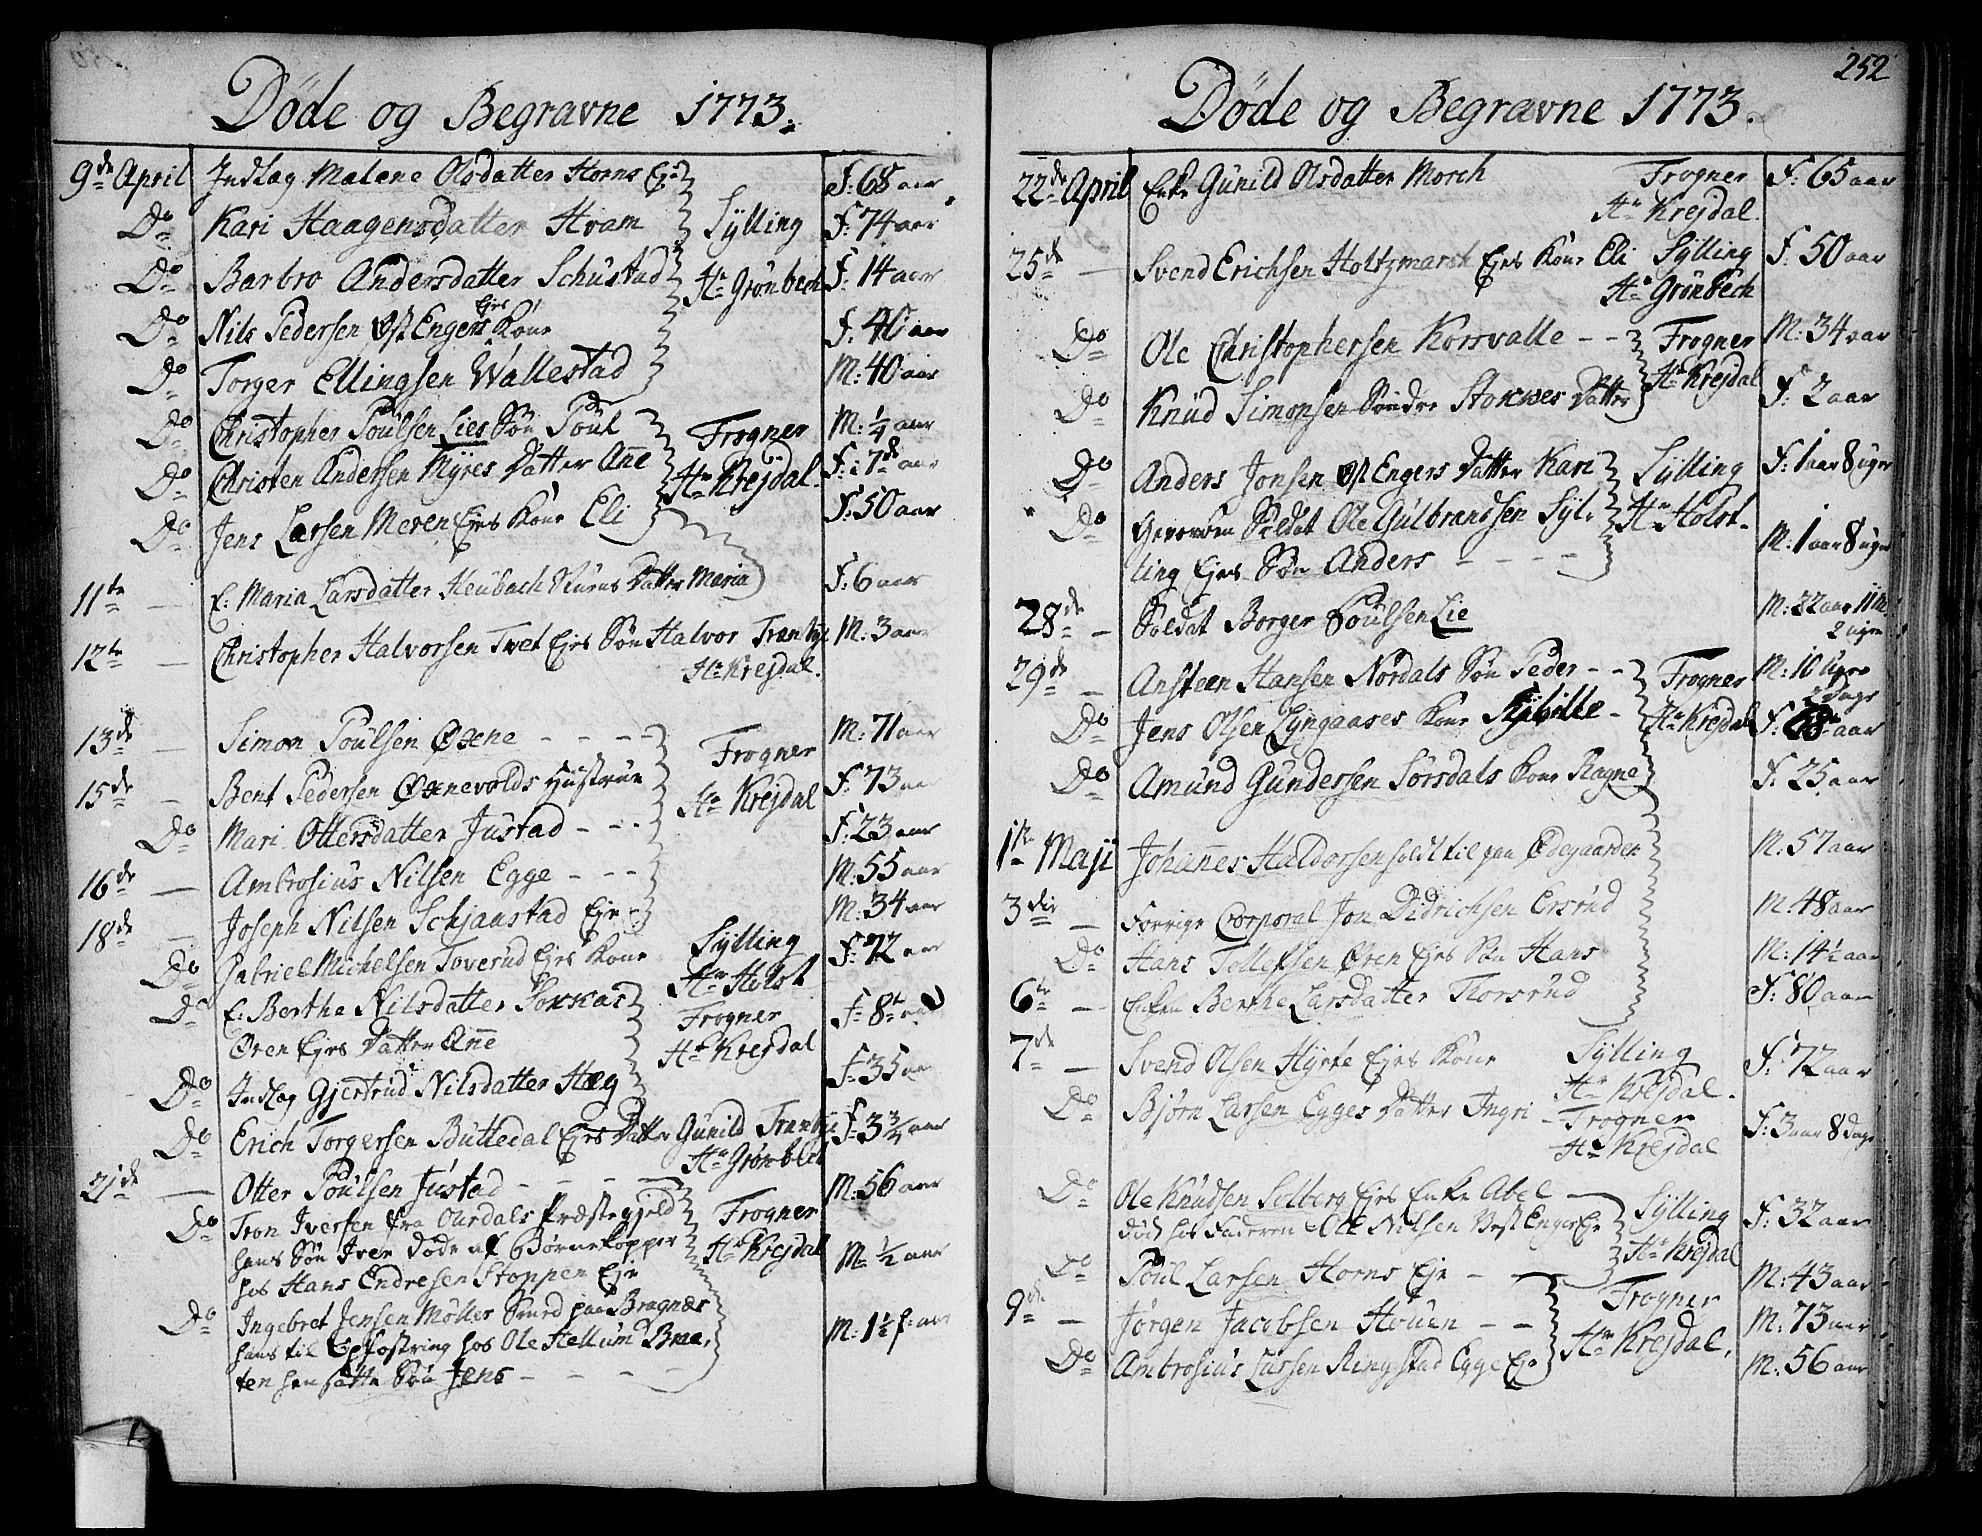 Døde og Begravne 1773.
9de April Indlag Malene Olsdatter Horns Eje F: 68 aar
Do Kari Haagensdatter Hvam Sylling F: 74 aar
Do Barbro Andersdatter Schustad Hr Grønbech F: 14 aar
Do Nils Pedersen Øst Engers Ejes Kone F: 40 aar
Do Torger Ellingsen Wallestad M: 40 aar
Do Christopher Poulsen Lies Søn Poul Frogner M: 1/4 aar
Do Christen Andersen Myres Datter Anne Hr Krejdal. F: i 7de aar
Do Jens Larsen Meren Ejes Kone Eli F: 50 aar
11te E: Maria Larsdatter Heubach Datter Maria F: 6 aar
12te Christopher Halvorsen Tvet Ejes Søn Halvor Tranbye M: 3 aar
Hr Krejdal.
13de Simon Poulsen Øxne M: 71 aar
Frogner
15de Bent Pedersen Øxnevolds Hustrue Hr Krejdal F: 73 aar
Do Mari Ottersdatter Justad F: 23 aar
16de Ambrosius Nilsen Egge M: 55 aar
18de Joseph Nilsen Schjaustad Eje M: 34 aar
Do Gabriel Michelsen Toverud Ejes Kone Sylling F: 72 aar
Hr Holst
Do E: Berthe Nilsdatter Frogner F: 8te aar
Øren Ejes Datter Anne Hr Krejdal
Do Indlag Gjertrud Nilsdatter Hæg F: 35 aar
Do Erich Torgersen Buttedal Ejes Datter Gunild Tranbye F: 3 3/4 aar
Hr Grønbech
21de Otter Poulsen Justad M: 56 aar
Do Tron Iversen fra Ourdals Præstegjeld Frogner
hans Søn Iver døde af Børnekopper Hr Krejdal M: 1/2 aar
hos Hans Endresen Stoppen Eje
Do Ingebret Jensen Møller Smed paa Bragnæs
hans til Opfostring hos Ole Hellum Bra- M: 1 1/2 aar
ten hensatte Søn Jens
252
Døde og Begravne 1773.
22de April Enke Gunild Olsdatter Morch Frogner F: 65 aar
Hr Krejdal.
25de Svend Erichsen Holtzmarsk Ejes Kone Eli Sylling F: 50 aar
Hr Grønbech
Do Ole Christophersen Korsvalle Frogner M: 34 aar
Do Knud Simonsen Søndre Stokkes Datter Hr Krejdal F: 2 aar
Do Anders Jonsen Øst Engers Datter Kari Sylling F: 1 aar 8 uger
Do Soldat Ole Gulbrandsen Syl- Hr Holst.
ling Ejes Søn Anders M: 1 aar 8 uger
28de Soldat Borger Poulsen Lie M: 22 aar 11 M
2 uger
29de Ansteen Hansen Nordals Søn Peder Frogner M: 10 uger
2 Dage
Do Jens Olsen Lyngaases Kone Sibille Hr Krejdal F: 68 aar
Do Amund Gundersen Sørsdals Kone Ragne F: 25 aar
1te Maji Johannes Haldorsen holdt til paa Ødegaarden M: 57 aar
3die Forrige Corporal Jon Didrichsen Ersrud M: 48 aar
Do Hans Tollefsen Øren Ejes Søn Hans M: 14 1/2 aar
6te Enken Berthe Larsdatter Thorsrud F: 80 aar
7de Svend Olsen Hyrte Ejes Kone Sylling F: 72 aar
Hr Krejdal.
Do Bjørn Larsen Egges Datter Ingri Frogner F: 3 aar 8 dage
Hr Krejdal
Do Ole Knudsen Solberg Ejes Enke Abel Sylling
død hos Faderen Ole Nilsen Vest Enger Eje F: 32 aar
Hr Krejdal
Do Poul Larsen Horns Eje M: 43 aar
9de Jørgen Jacobsen Houen Frogner M: 73 aar
Do Ambrosius Larsen Ringstad Egge Eje Hr Krejdal. M: 56 aar